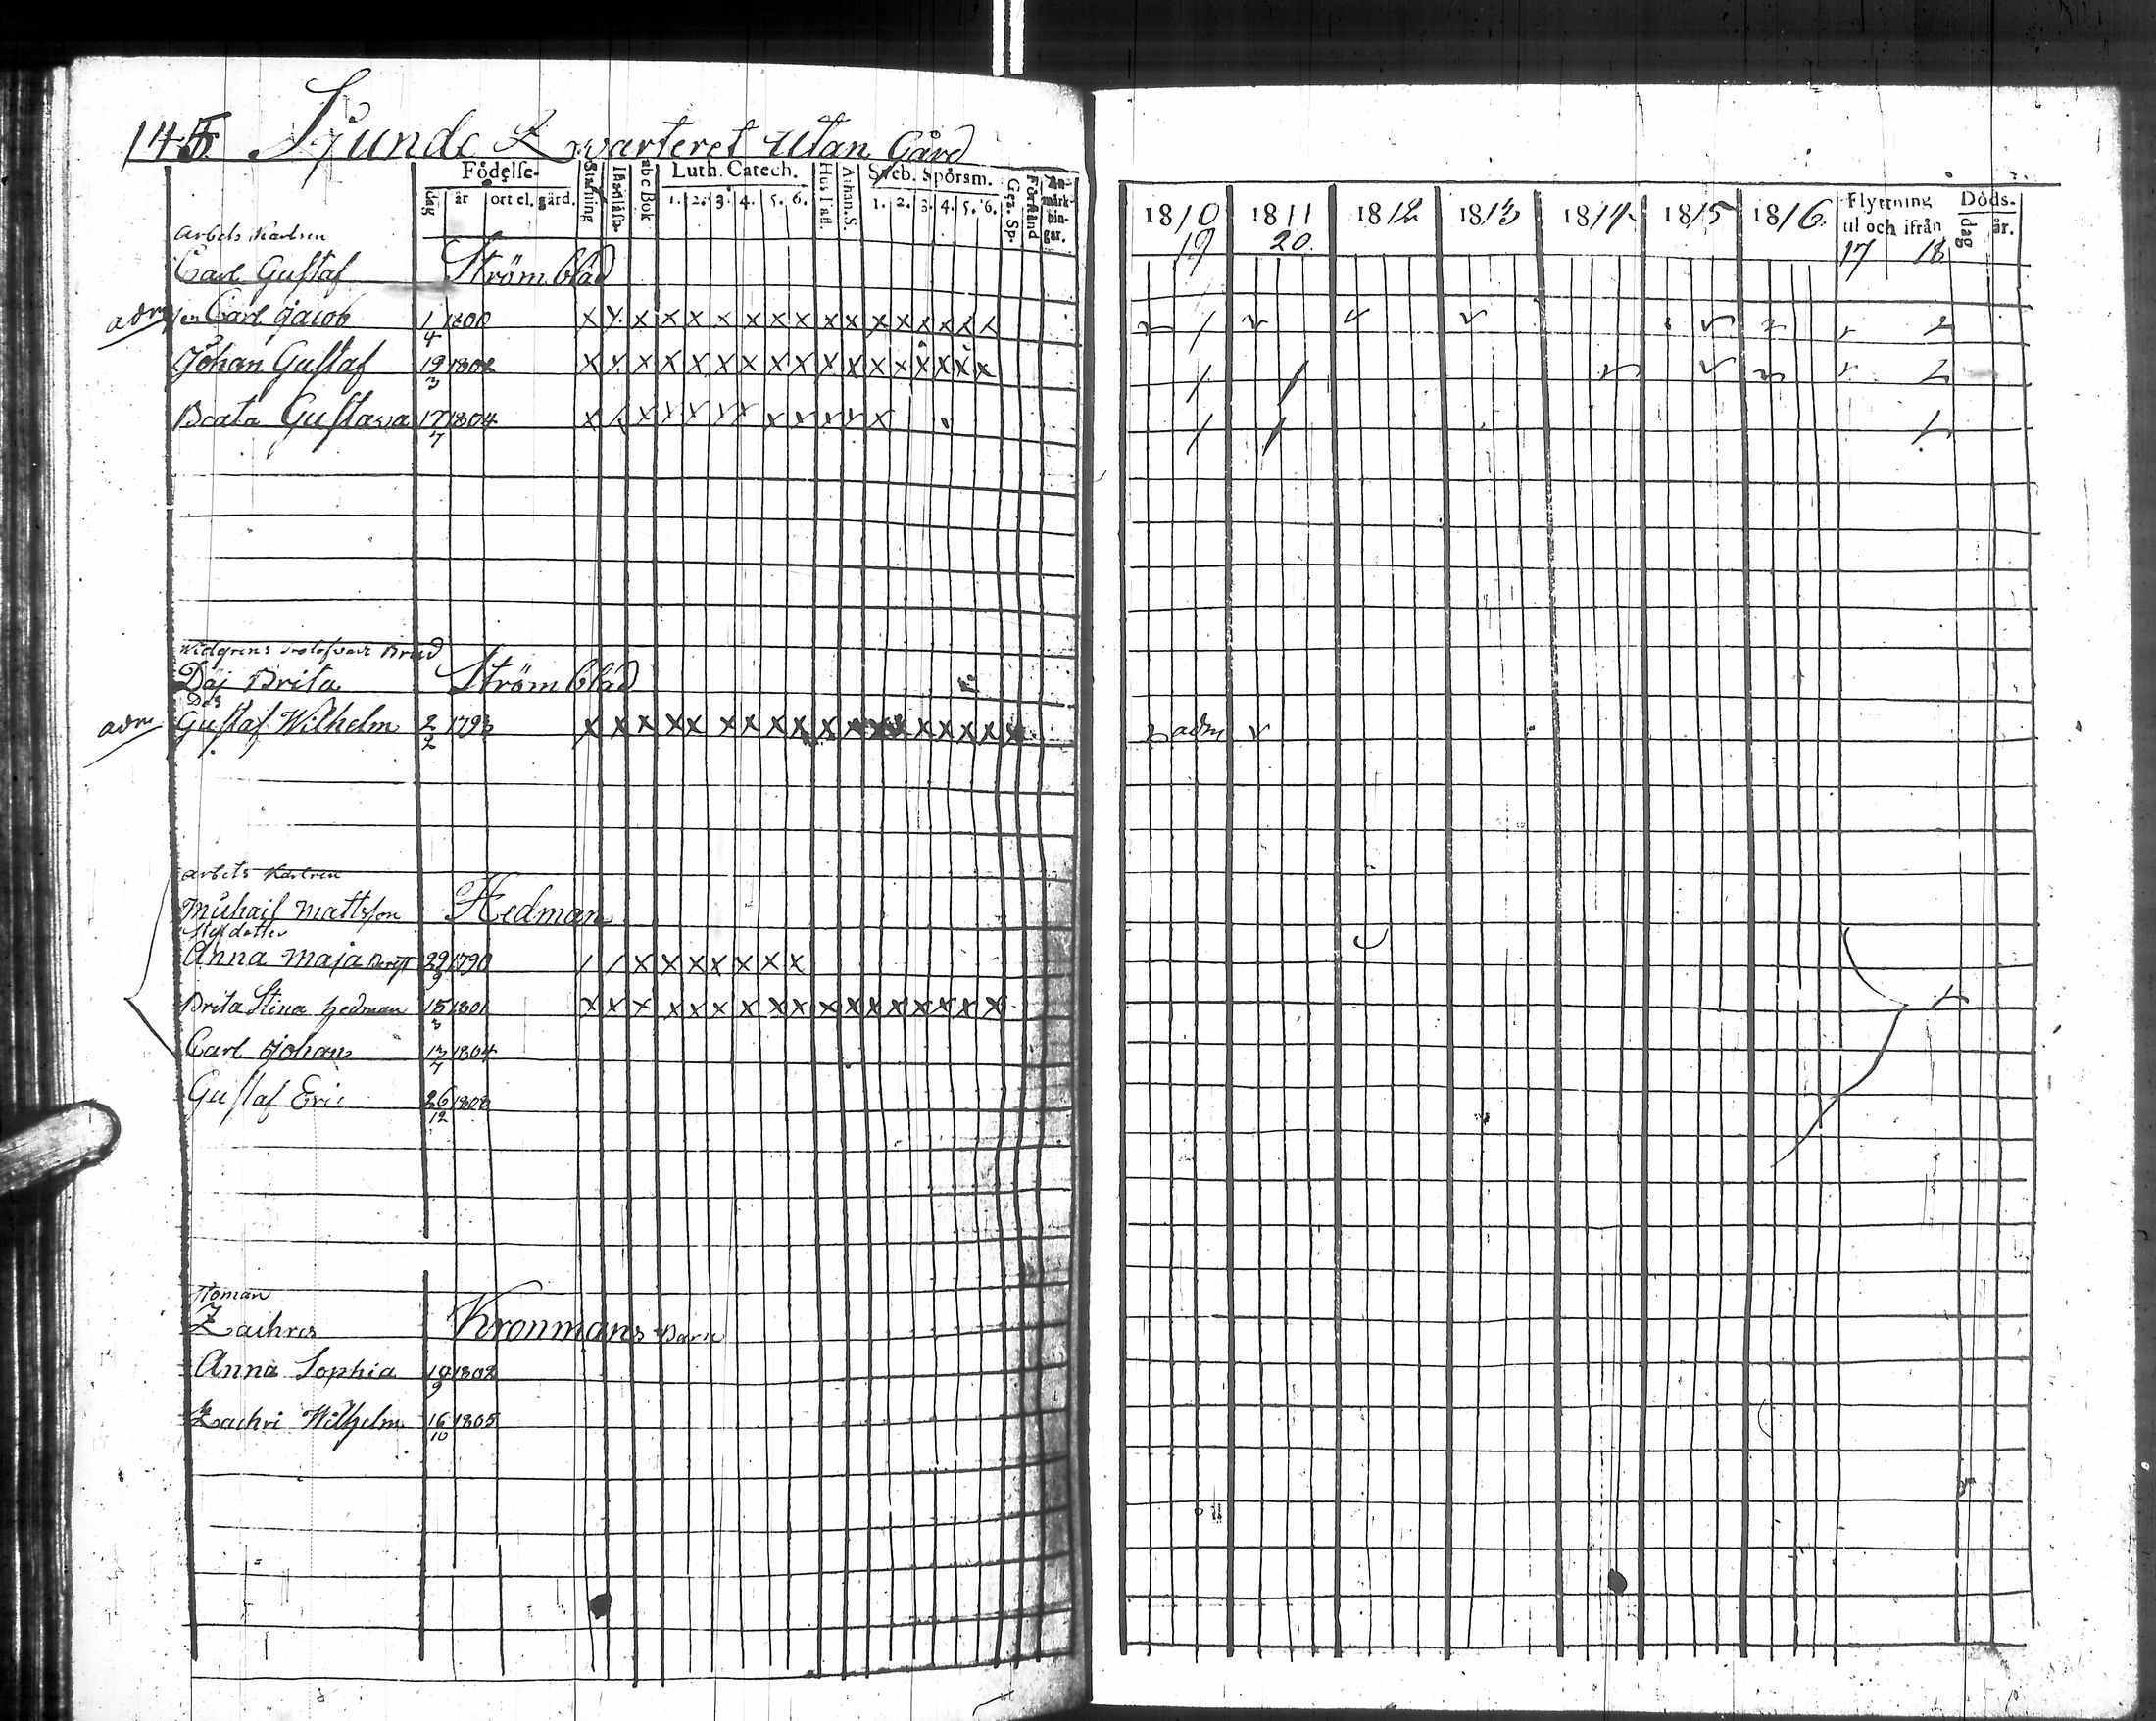 145. Sjunde Qwarteret utan Gård
Födelse- Stafning Luth. Catech. Sveb. Spörsm. Gez. Sp. Förstånd An-märk-nin-gar.
dag år ort el. gård. abc Bok 1. 2. 3. 4. 5. 6. Hus Taff. Athan. S. 1. 2. 3. 4. 5. 6.
1810 1811 1812 1813 1814 1815 1816. Flyttning til och ifrån Döds- dag år.
19 20 17 18
Arbets Karlsen
Carl Gustaf Strömblad
adm Carl Jacob 1/4 1800
Johan Gustaf 19/3 1802
Beata Gustava 17/7 1804
Brita Strömblad
adm Gustaf Wilhelm 2/2 1793 adm
Arbets Karlsen
Michail Mattsson Hedman
Styfdotter
Anna Maja 29/9 1790
Brita Stina Hedman 15/3 1801
Carl Johan 13/7 1804
Gustaf Eric 26/12 1808
Zachris Kronmans Barn
Anna Sophia 19/9 1802
Zachri Wilhelm 16/10 1805